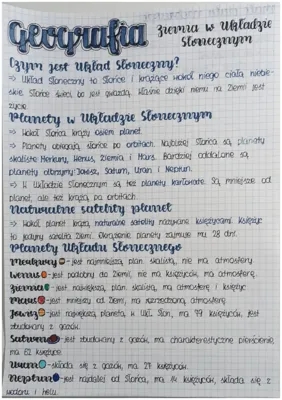 Geografia ziemia w Układzie
Słonecznym
Czym jest Układ Słoneczny?
⇒ Układ Słoneczny to Słońce i krążące wokół niego ciała niebie-
skie. Słońce świeci bo jest gwiazdą. Właśnie dzięki niemu na Ziemi jest
życie
Planety w Układzie Słonecznym
⇒ Wokół Słońca krąży osiem planet.
⇒ Planety obiegają słońce po orbitach. Najbliżej Słońca są, planety
skaliste Merkury, Wenus, Ziemia i Mars. Bardziej oddalone są,
planety olbrzymy Jowisz, Saturn, Uran i Neptun.
⇒ W Układzie Słonecznym są też planety karłowate. Są mniejsze od
planet, ale też krążą po orbitach.
Naturalne satelity planet
⇒ Wokół planet krążą naturalne satelity nazywane księżycami. Księżyc
to jedyny satelita Ziemi. Okrążenie planety zajmuje mu 28 dni.
Planety Układu Słonecznego
Merkury - jest najmniejszą plan. skalistą, nie ma atmosferę.
Wenus - jest podobny do Ziemi, nie ma księżyców, ma atmosferę.
Ziemia - jest największą plan. skalistą, ma atmosferę i księżyc
Mars - jest mniejszy od Ziemi, ma rozrzedzoną atmosferę.
Jowisz - jest największą planetą w Ukł. Słon, ma 79 księżyców, jest
zbudowany z gazów.
Saturn - jest zbudowany z gazów, ma charakterystyczne pierścienie,
ma 62 księżyce
Uran - składa się z gazów, ma 27 księżyców.
Neptun - jest najdalej od Słońca, ma 14 księżyców, składa się z
wodoru i helu.